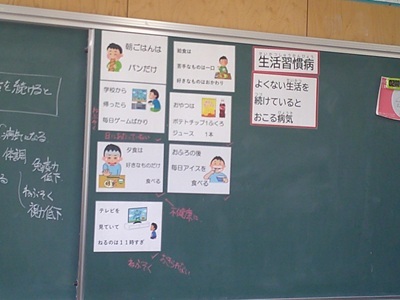 を続けると
病気になる
体調
免疫力
低下
ねぶそく
視力低下
朝ごはんは
パンだけ
朝食は
苦手なものは一口
好きなものはおかわり
学校から
帰ったら
毎日ゲームばかり
おやつは
ポテトチップ1ふくろ
ジュース 1本
夕食は
好きなものだけ
食べる
おふろの後
毎日アイスを
食べる
テレビを
見ていて
ねるのは11時すぎ
ねぶそく
生活習慣病
よくない生活を
続けていると
おこる病気